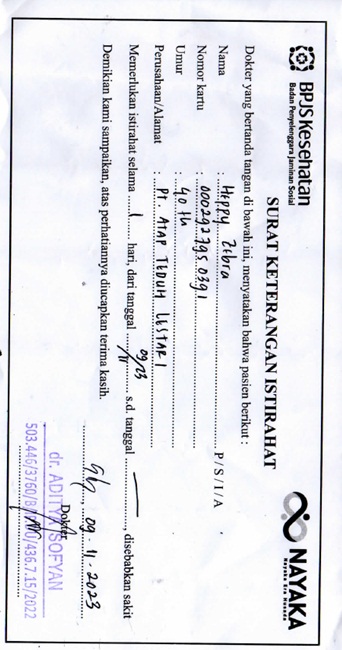 BPJS Kesehatan
Badan Penyelenggara Jaminan Sosial
NAYAKA
Nayaka Era Husada
SURAT KETERANGAN ISTIRAHAT
Dokter yang bertanda tangan di bawah ini, menyatakan bahwa pasien berikut :
Nama : Heppy Zebra P / S / I / A
Nomor kartu : 0002927950391
Umur : 40 th
Perusahaan/Alamat : PT. ATAP TEDUH LESTARI
Memerlukan istirahat selama 1 hari, dari tanggal 09/11 23 s.d. tanggal —, disebabkan sakit
Demikian kami sampaikan, atas perhatiannya diucapkan terima kasih.
09-11-2023
Dokter
dr. ADITYA ISOFYAN